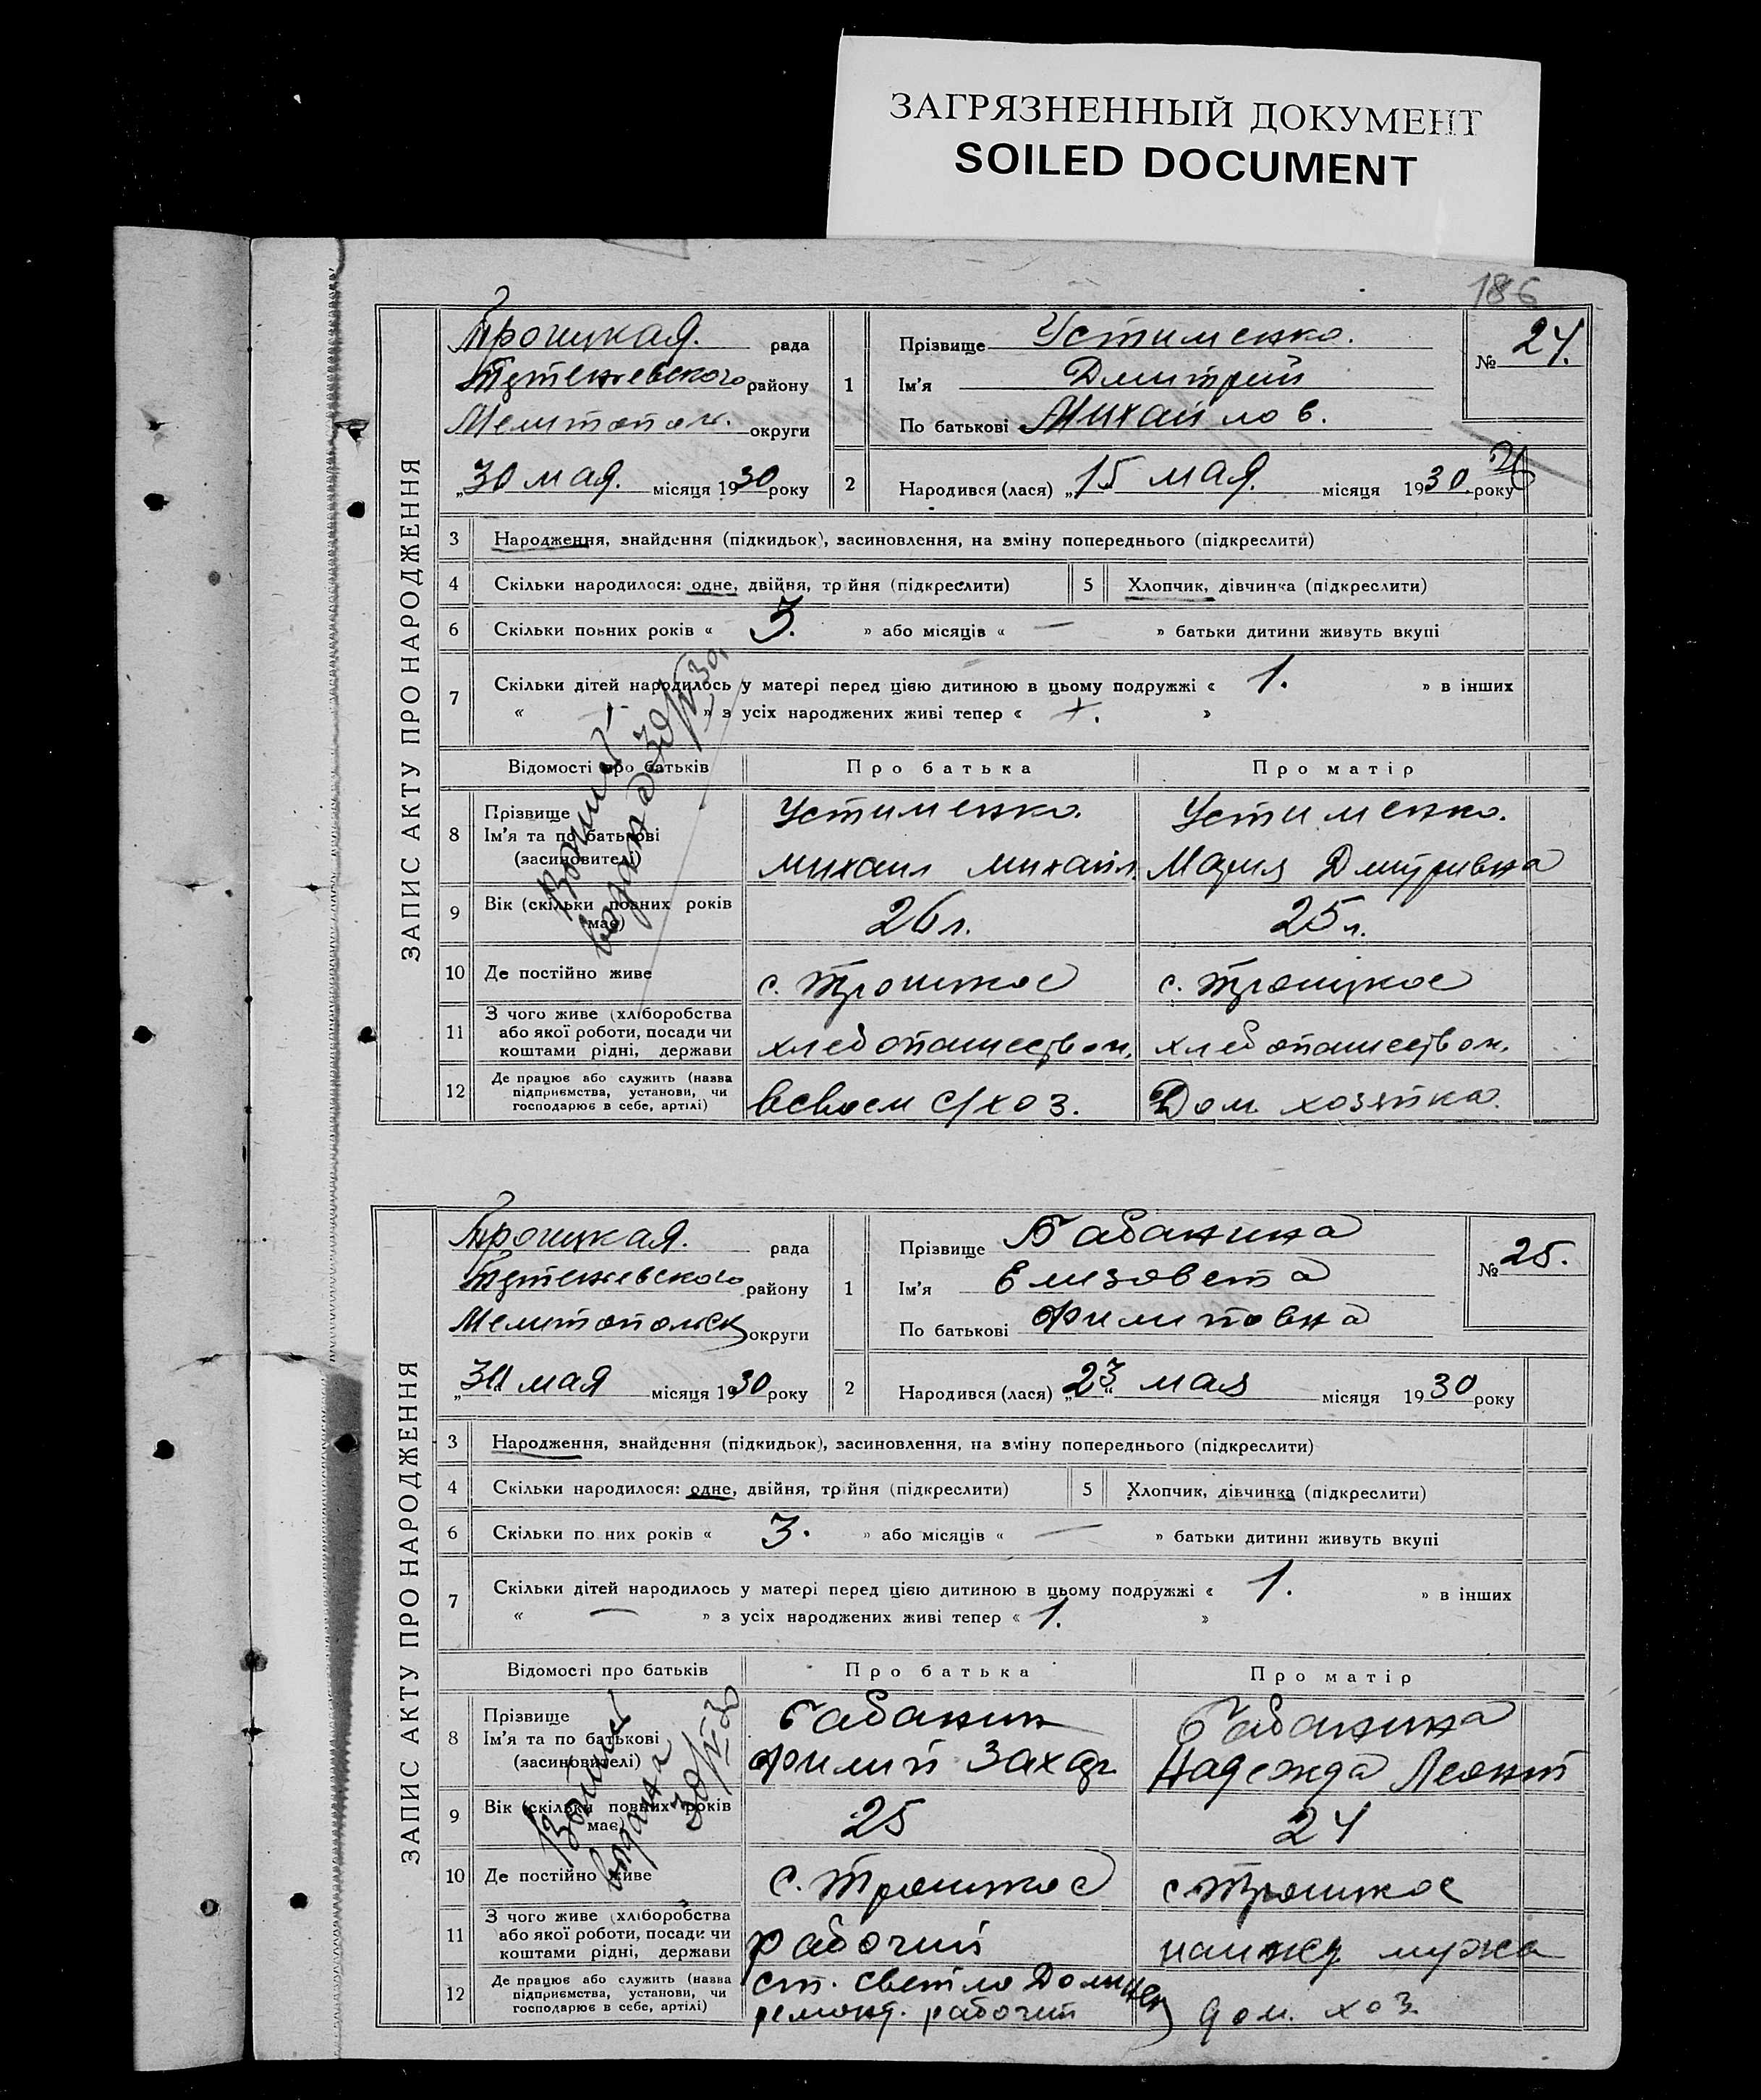 ЗАГРЯЗНЕННЫЙ ДОКУМЕНТ
SOILED DOCUMENT
186
ЗАПИС АКТУ ПРО НАРОДЖЕННЯ
Троицкая. рада
району
Мелитопол. округи
„30 мая. місяця 1930 року
1
Прізвище Устименко.
Ім'я Дмитрий
По батькові Михайлов.
№ 24.
2 Народився (лася) „15 мая. місяця 1930. року
3 Народження, знайдення (підкидьок), засиновлення, на зміну попереднього (підкреслити)
4 Скільки народилося: одне, двійня, трійня (підкреслити) 5 Хлопчик, дівчинка (підкреслити)
6 Скільки повних років « 3. » або місяців « — » батьки дитини живуть вкупі
7 Скільки дітей народилось у матері перед цією дитиною в цьому подружжі « 1. » в інших
« — » з усіх народжених живі тепер « »
Відомості про батьків Про батька Про матір
8 Прізвище
Ім'я та по батькові
(засиновителі)
Устименко. Устименко.
Михаил Михайл. Мария Дмитривна
9 Вік (скільки повних років
має)
26 л. 25 л.
10 Де постійно живе с. Троицкое с. Троицкое
11 З чого живе (хліборобства
або якої роботи, посади чи
коштами рідні, держави
хлебопашеством. хлебопашеством.
12 Де працює або служить (назва
підприємства, установи, чи
господарює в себе, артілі)
всвоем с/хоз. Дом. хозяйка.
выдана 30/V 30.
ЗАПИС АКТУ ПРО НАРОДЖЕННЯ
Троицкая. рада
району
Мелитопольск округи
„30 мая місяця 1930 року
1
Прізвище Бабанина
Ім'я Елизовета
По батькові Филиповна
№ 25.
2 Народився (лася) „23“ мая місяця 1930 року
3 Народження, знайдення (підкидьок), засиновлення, на зміну попереднього (підкреслити)
4 Скільки народилося: одне, двійня, трійня (підкреслити) 5 Хлопчик, дівчинка (підкреслити)
6 Скільки по них років « 3. » або місяців « — » батьки дитини живуть вкупі
7 Скільки дітей народилось у матері перед цією дитиною в цьому подружжі « 1. » в інших
« — » з усіх народжених живі тепер « 1. »
Відомості про батьків Про батька Про матір
8 Прізвище
Ім'я та по батькові
(засиновителі)
Бабанин Бабанина
Филип Захар. Надежда Леонт
9 Вік (скільки повних років
має)
25 24
10 Де постійно живе с. Троицкое с Троицкое
11 З чого живе (хліборобства
або якої роботи, посади чи
коштами рідні, держави
рабочий на мужа
12 Де працює або служить (назва
підприємства, установи, чи
господарює в себе, артілі)
ст. Светло
ремонт. рабочий дом. хоз
выдана 30/V 30